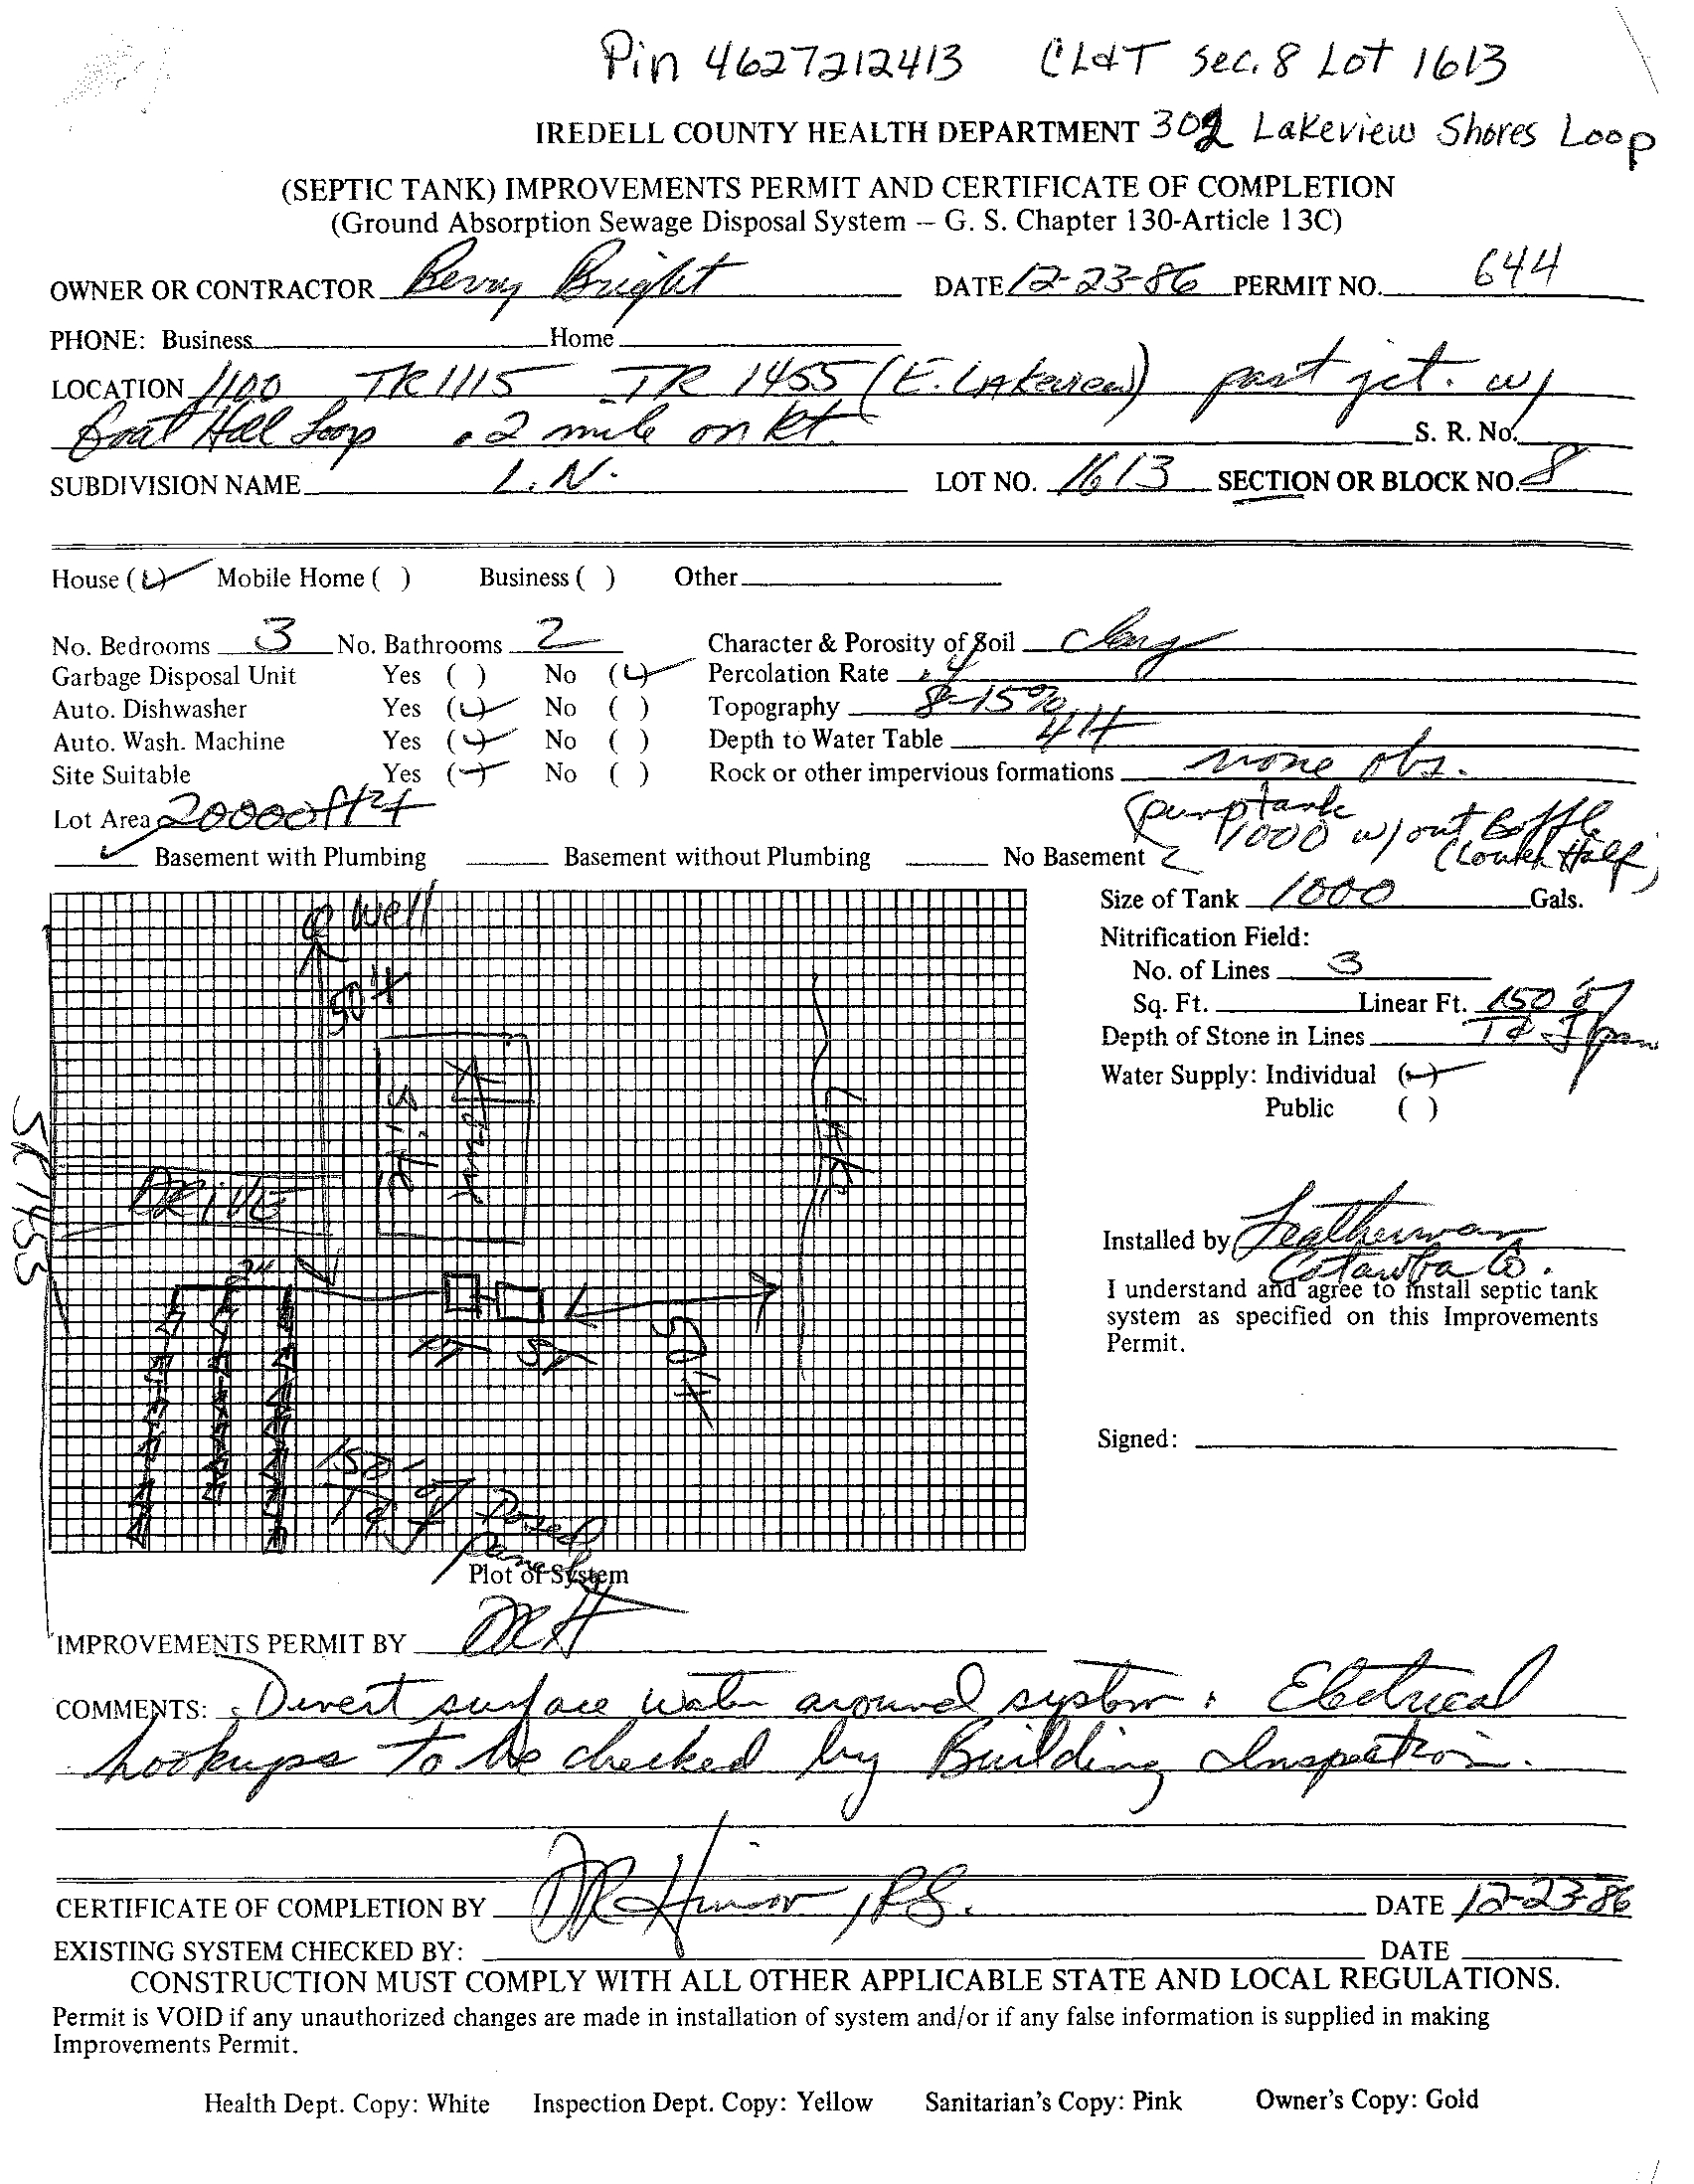 Pin 4627212413 CL&T Sec. 8 Lot 1613
IREDELL COUNTY HEALTH DEPARTMENT 302 Lakeview Shores Loop
(SEPTIC TANK) IMPROVEMENTS PERMIT AND CERTIFICATE OF COMPLETION
(Ground Absorption Sewage Disposal System — G. S. Chapter 130-Article 13C)
OWNER OR CONTRACTOR Berry Bright DATE 12-23-86 PERMIT NO. 644
PHONE: Business Home
LOCATION 1100 TR 1115 TR 1455 (E. Lakeview) past jct. w/
Boat Hill Loop .2 mile on Rt. S. R. No.
SUBDIVISION NAME L.N. LOT NO. 1613 SECTION OR BLOCK NO. 8
House (✓) Mobile Home ( ) Business ( ) Other
No. Bedrooms 3 No. Bathrooms 2 Character & Porosity of Soil Clay
Garbage Disposal Unit Yes ( ) No (✓) Percolation Rate .4
Auto. Dishwasher Yes (✓) No ( ) Topography 8-15%
Auto. Wash. Machine Yes (✓) No ( ) Depth to Water Table 4'+
Site Suitable Yes (✓) No ( ) Rock or other impervious formations none obs.
Lot Area 20000 ft2+
pump tank
1000 w/out Baffle
(Lower Half)
✓ Basement with Plumbing Basement without Plumbing No Basement
Size of Tank 1000 Gals.
Nitrification Field:
No. of Lines 3
Sq. Ft. Linear Ft. 150' of
Depth of Stone in Lines T & J Pan
Water Supply: Individual (✓)
Public ( )
Well
50'+
House
Lake
DRIVE
SR 1455
ST
50'+
150' of
T & J
Panel
Plot of System
Installed by Leatherman
Catawba Co.
I understand and agree to install septic tank
system as specified on this Improvements
Permit.
Signed:
IMPROVEMENTS PERMIT BY DRH
COMMENTS: Divert surface water around system. Electrical
hookups to be checked by Building Inspection.
CERTIFICATE OF COMPLETION BY DR Hinson, RS. DATE 12-23-86
EXISTING SYSTEM CHECKED BY: DATE
CONSTRUCTION MUST COMPLY WITH ALL OTHER APPLICABLE STATE AND LOCAL REGULATIONS.
Permit is VOID if any unauthorized changes are made in installation of system and/or if any false information is supplied in making
Improvements Permit.
Health Dept. Copy: White Inspection Dept. Copy: Yellow Sanitarian's Copy: Pink Owner's Copy: Gold